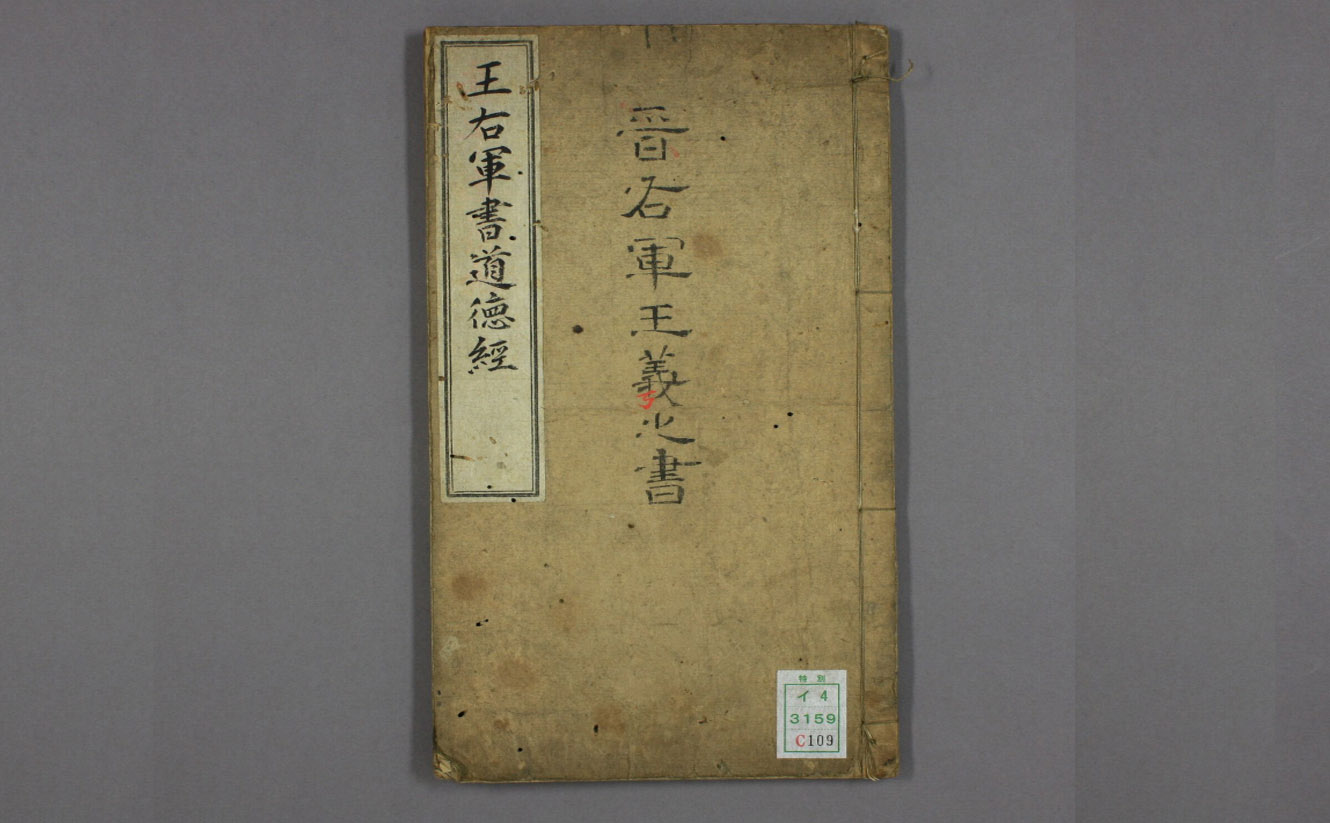 晉右軍王羲之書
王右軍書道德經
特別
イ4
3159
C109